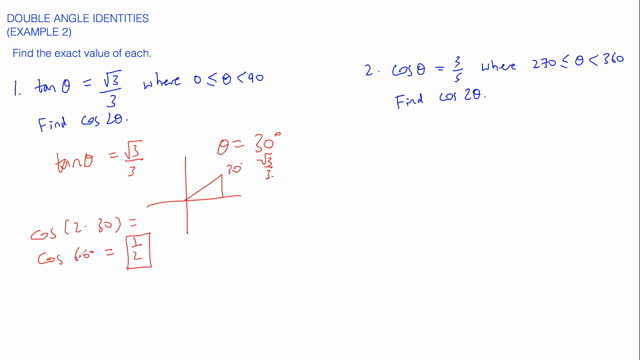 DOUBLE ANGLE IDENTITIES
(EXAMPLE 2)
Find the exact value of each.
1. tan θ = √3/3 where 0 ≤ θ < 90
Find cos 2θ.
tan θ = √3/3
θ = 30°
30° √3/3
cos (2 · 30) =
cos 60° = 1/2
2. cos θ = 3/5 where 270 ≤ θ < 360
Find cos 2θ.